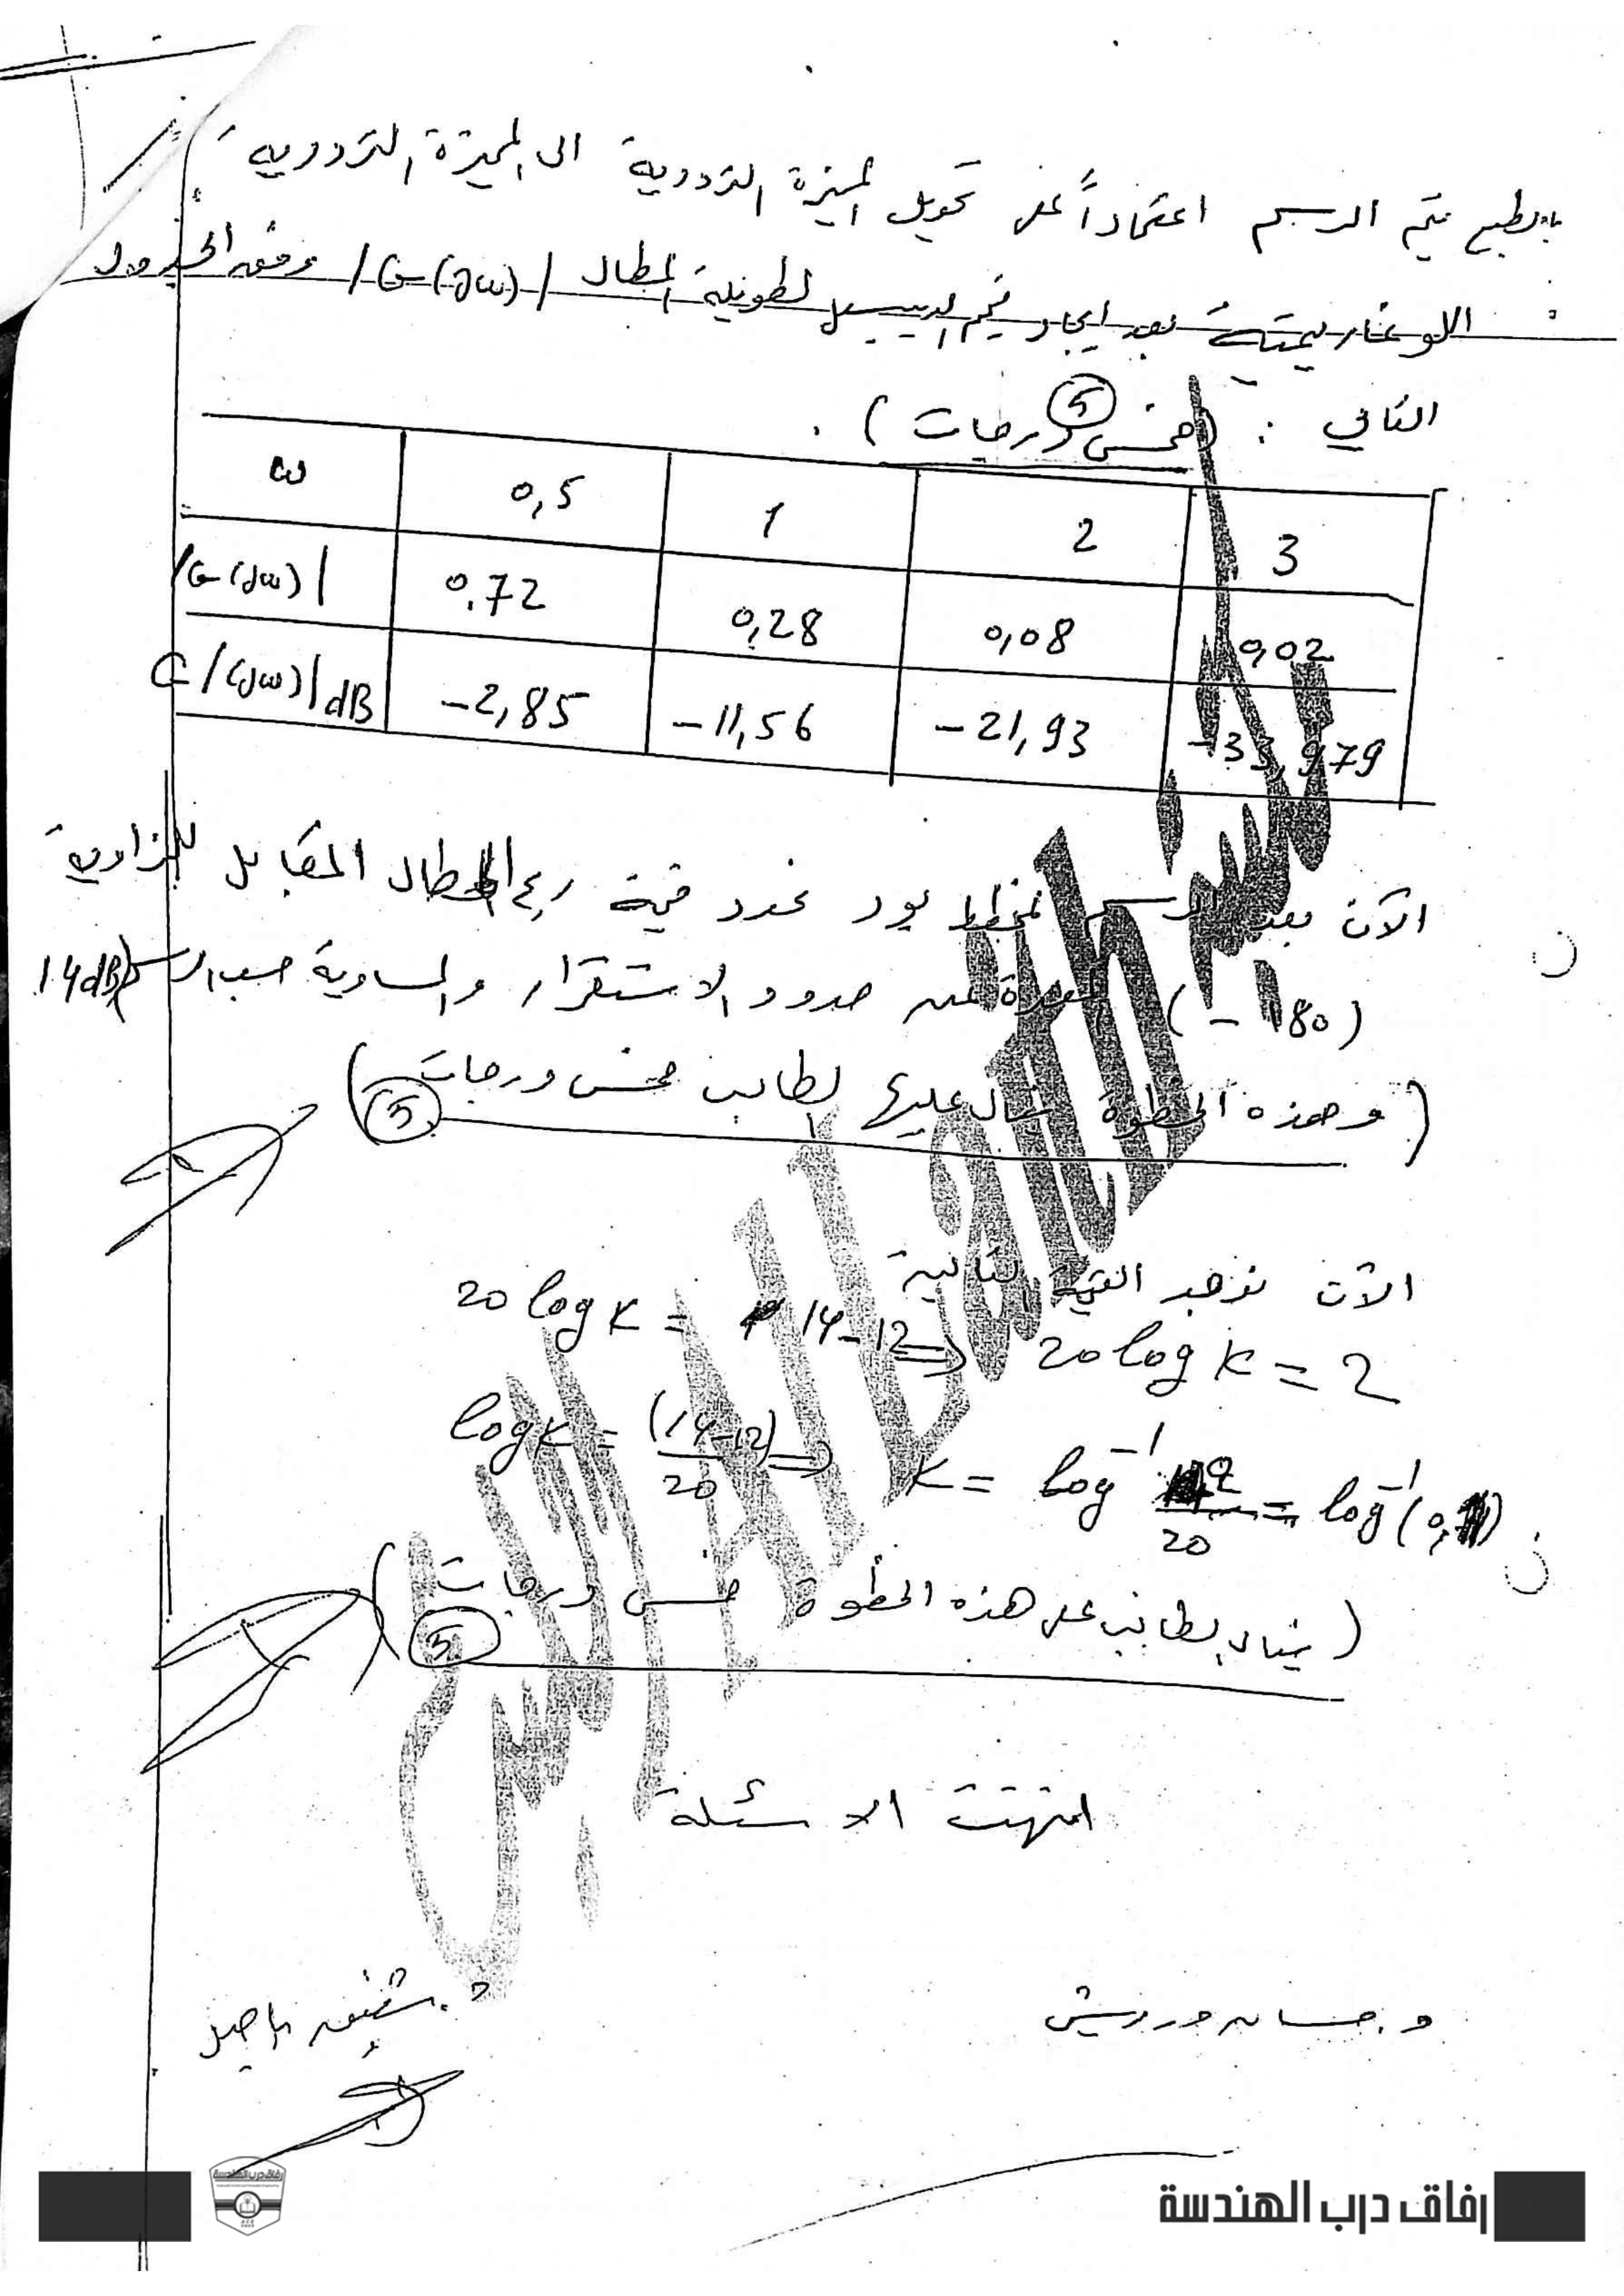 بالطبع يتم الرسم اعتماداً على تحويل الميزة الترددية الى الميزة الترددية
اللوغاريتمية بعد ايجاد قيم الديسيبل لطويلة المطال |G(jω)| وفق الجدول :
الثاني : (خمس درجات 5) .
ω 0,5 1 2 3
|G(jω)| 0.72 0,28 0,08 0,02
G|(jω)|dB -2,85 -11,56 -21,93 -33,979
الآن بعد الرسم لمخطط بود نحدد قيمة المطال المقابل للزاوية
(-180) المعبرة عن حدود الاستقرار والمساوية حسب الرسم 14dB
(وهذه الخطوة ينال عليها الطالب خمس درجات 5)
الآن نوجد القيمة الثانية
20 log K = 14-12 => 20 log K = 2
log K = (14-12)/20 => K = log⁻¹ 2/20 = log⁻¹(0,1)
(ينال الطالب على هذه الخطوة خمس درجات 5)
انتهت الاسئلة
د. حسان درويش
د. شفيق باصيل
رفاق درب الهندسة